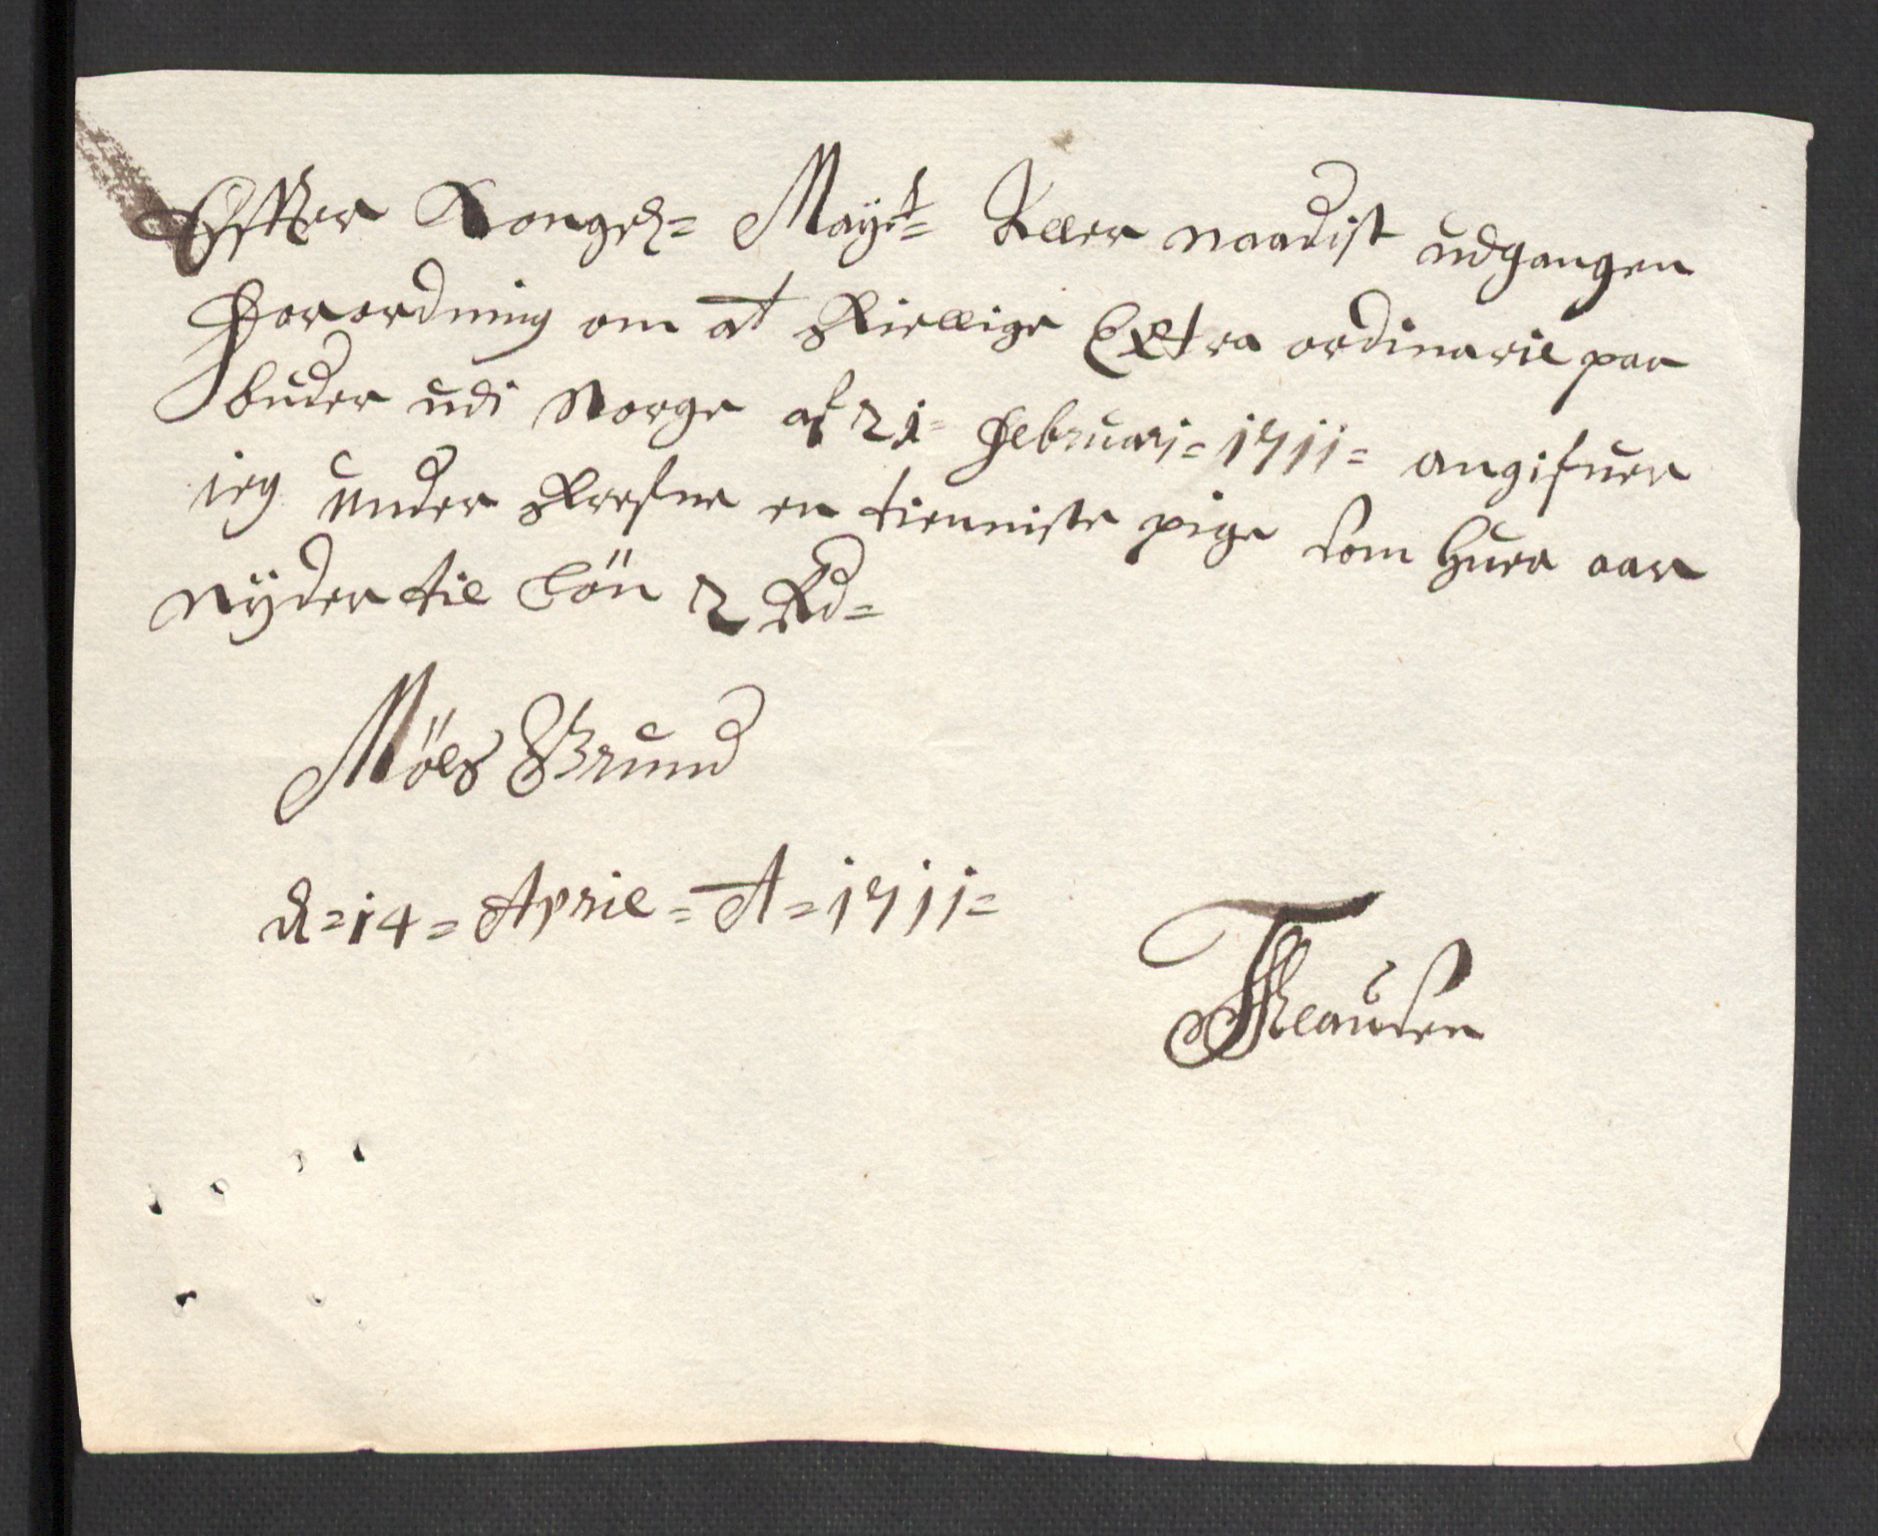 Effter Kongel= Mayst= Aller naadist udgangen
Forordning om at skiellige Extra ordinarie paa
buder udi Norge af 21= Februarj= 1711= angifuer
ieg under skrefne en tienniste pige som huer aar
nÿder til Lön 2 Rd=
Möls Grund
d=14= April= A=1711=
Clausen